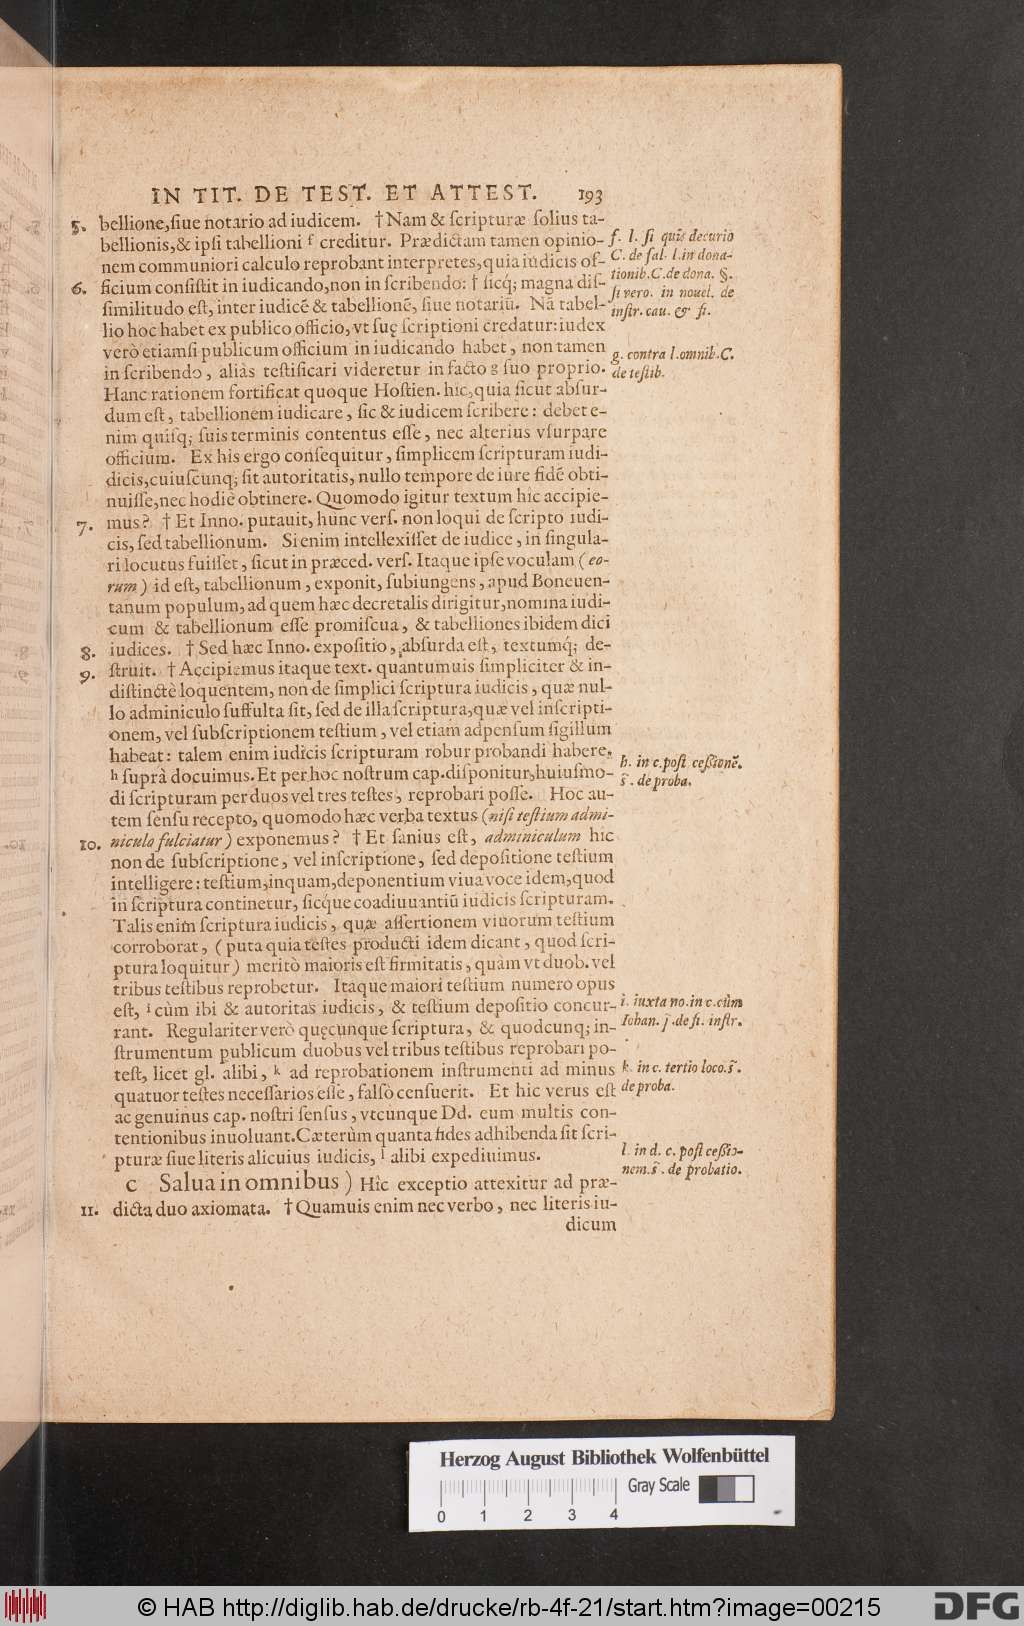 IN TIT. DE TEST. ET ATTEST. 193
5. bellione,ſiue notario ad iudicem. †Nam & ſcripturæ ſolius ta-
bellionis,& ipſi tabellioni f creditur. Prædictam tamen opinio-
nem communiori calculo reprobant interpretes,quia iudicis of-
6. ficium conſiſtit in iudicando,non in ſcribendo: † ſicq́; magna diſ-
ſimilitudo eſt, inter iudicẽ & tabellionẽ, ſiue notariũ. Nã tabel-
lio hoc habet ex publico officio, vt ſuę ſcriptioni credatur: iudex
verò etiamſi publicum officium in iudicando habet, non tamen
in ſcribendo, aliàs teſtificari videretur in facto g ſuo proprio.
Hanc rationem fortificat quoque Hoſtien. hic,quia ſicut abſur-
dum eſt, tabellionem iudicare, ſic & iudicem ſcribere: debet e-
nim quiſq; ſuis terminis contentus eſſe, nec alterius vſurpare
officium. Ex his ergo conſequitur, ſimplicem ſcripturam iudi-
dicis,cuiuſcunq; ſit autoritatis, nullo tempore de iure fidẽ obti-
nuiſſe,nec hodie obtinere. Quomodo igitur textum hic accipie-
7. mus? † Et Inno. putauit, hunc verſ. non loqui de ſcripto iudi-
cis, ſed tabellionum. Si enim intellexiſſet de iudice, in ſingula-
ri locutus fuiſſet, ſicut in præced. verſ. Itaque ipſe voculam (eo-
rum) id eſt, tabellionum, exponit, ſubiungens, apud Boneuen-
tanum populum, ad quem hæc decretalis dirigitur,nomina iudi-
cum & tabellionum eſſe promiſcua, & tabelliones ibidem dici
8. iudices. † Sed hæc Inno. expoſitio, abſurda eſt, textumq́; de-
9. ſtruit. † Accipiemus itaque text. quantumuis ſimpliciter & in-
diſtinctè loquentem, non de ſimplici ſcriptura iudicis, quæ nul-
lo adminiculo ſuffulta ſit, ſed de illa ſcriptura,quæ vel inſcripti-
onem, vel ſubſcriptionem teſtium, vel etiam adpenſum ſigillum
habeat: talem enim iudicis ſcripturam robur probandi habere,
h ſuprà docuimus. Et per hoc noſtrum cap. diſponitur,huiuſmo-
di ſcripturam per duos vel tres teſtes, reprobari poſſe. Hoc au-
tem ſenſu recepto, quomodo hæc verba textus (niſi teſtium admi-
10. niculo fulciatur) exponemus? † Et ſanius eſt, adminiculum hic
non de ſubſcriptione, vel inſcriptione, ſed depoſitione teſtium
intelligere: teſtium,inquam,deponentium viua voce idem,quod
in ſcriptura continetur, ſicque coadiuuantiũ iudicis ſcripturam.
Talis enim ſcriptura iudicis, quæ aſſertionem viuorum teſtium
corroborat, (puta quia teſtes producti idem dicant, quod ſcri-
ptura loquitur) meritò maioris eſt firmitatis, quàm vt duob. vel
tribus teſtibus reprobetur. Itaque maiori teſtium numero opus
eſt, i cùm ibi & autoritas iudicis, & teſtium depoſitio concur-
rant. Regulariter verò quęcunque ſcriptura, & quodcunq; in-
ſtrumentum publicum duobus vel tribus teſtibus reprobari po-
teſt, licet gl. alibi, k ad reprobationem inſtrumenti ad minus
quatuor teſtes neceſſarios eſſe, falſò cenſuerit. Et hic verus eſt
ac genuinus cap. noſtri ſenſus, vtcunque Dd. eum multis con-
tentionibus inuoluant. Cæterùm quanta fides adhibenda ſit ſcri-
pturæ ſiue literis alicuius iudicis, l alibi expediuimus.
c Salua in omnibus) Hic exceptio attexitur ad præ-
11. dicta duo axiomata. † Quamuis enim nec verbo, nec literis iu-
dicum
f. l. ſi quis decurio
C. de fal. l. in dona-
tionib. C. de dona. §.
ſi vero. in nouel. de
inſtr. cau. & fi.
g. contra l. omnib. C.
de teſtib.
h. in c. poſt ceſsionẽ.
s̃. de proba.
i. iuxta no. in c. cùm
Iohan. j̃. de fi. inſtr.
k. in c. tertio loco. s̃.
de proba.
l. in d. c. poſt ceſsio-
nem. s̃. de probatio.
Herzog August Bibliothek Wolfenbüttel
Gray Scale
0 1 2 3 4
© HAB http://diglib.hab.de/drucke/rb-4f-21/start.htm?image=00215
DFG